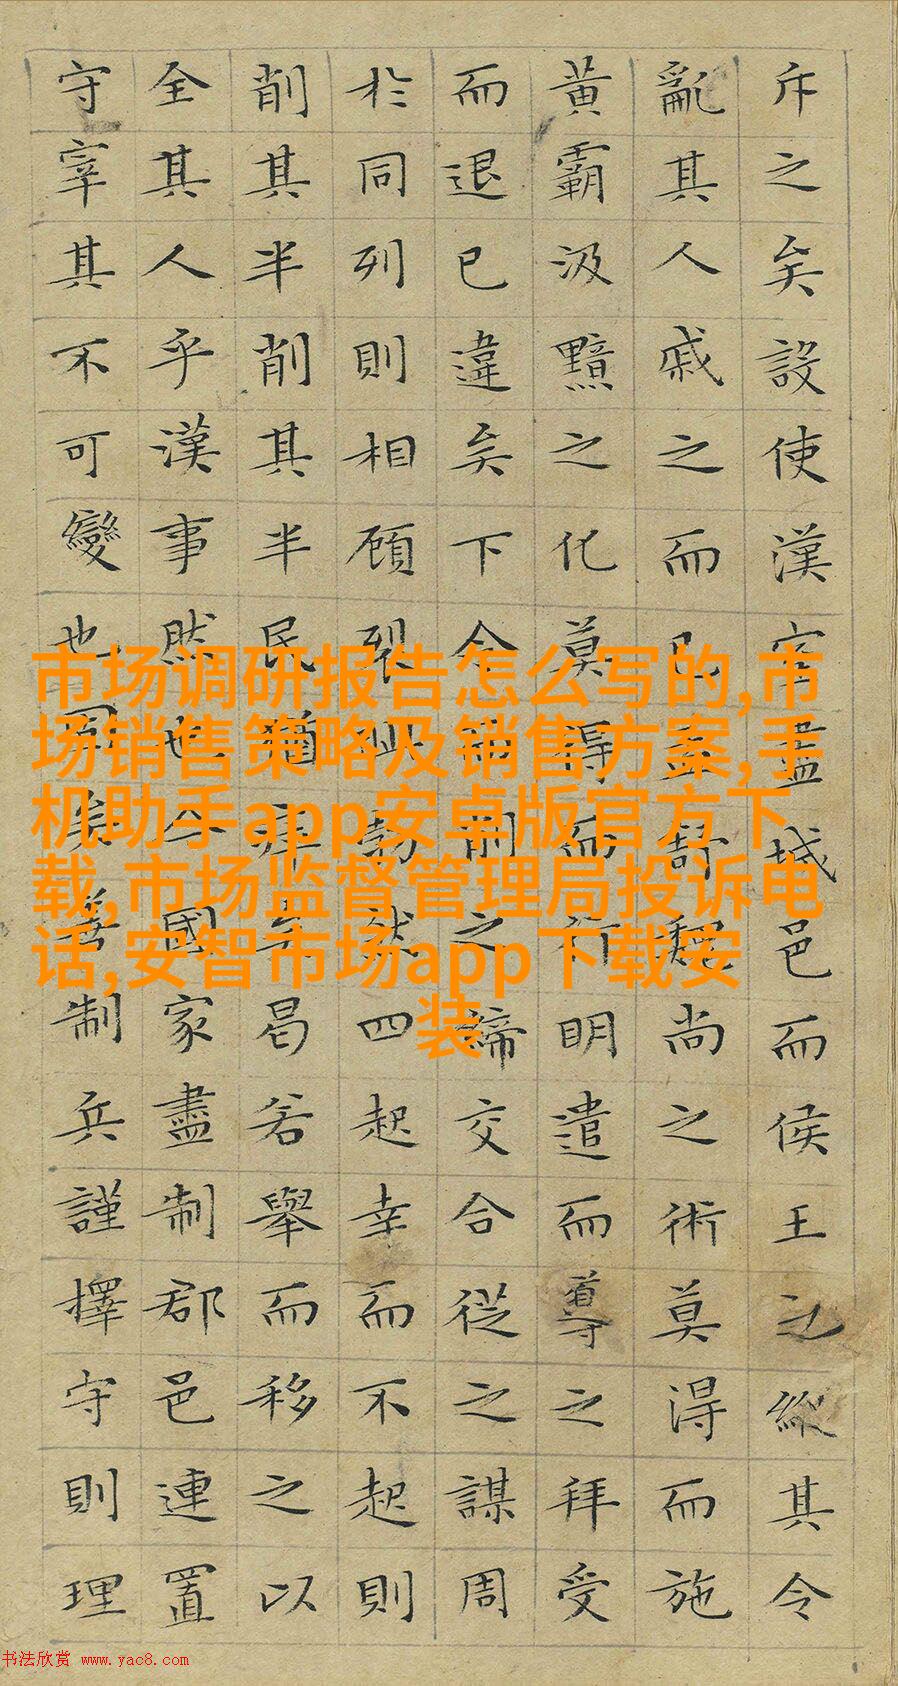 斥之矣設使漢室盡城邑而侯王之縱其令
亂其人戚之而已孟舒魏尚之術莫得而施
黃霸汲黯之化莫得而行明遣而導之拜受
而退已違矣下令而削之締交合從之謀周
於同列則相顧裂眦勃然四起幸而不起則
削其半削其半民猶瘁矣曷若舉而移之以
全其人乎漢事然也今國家盡制郡邑連置
守宰其不可變也固矣善制兵謹擇守則理
市场调研报告怎么写的,市
场销售策略及销售方案,手
机助手app安卓版官方下
载,市场监督管理局投诉电
话,安智市场app下载安
装
书法欣赏 www.yac8.com